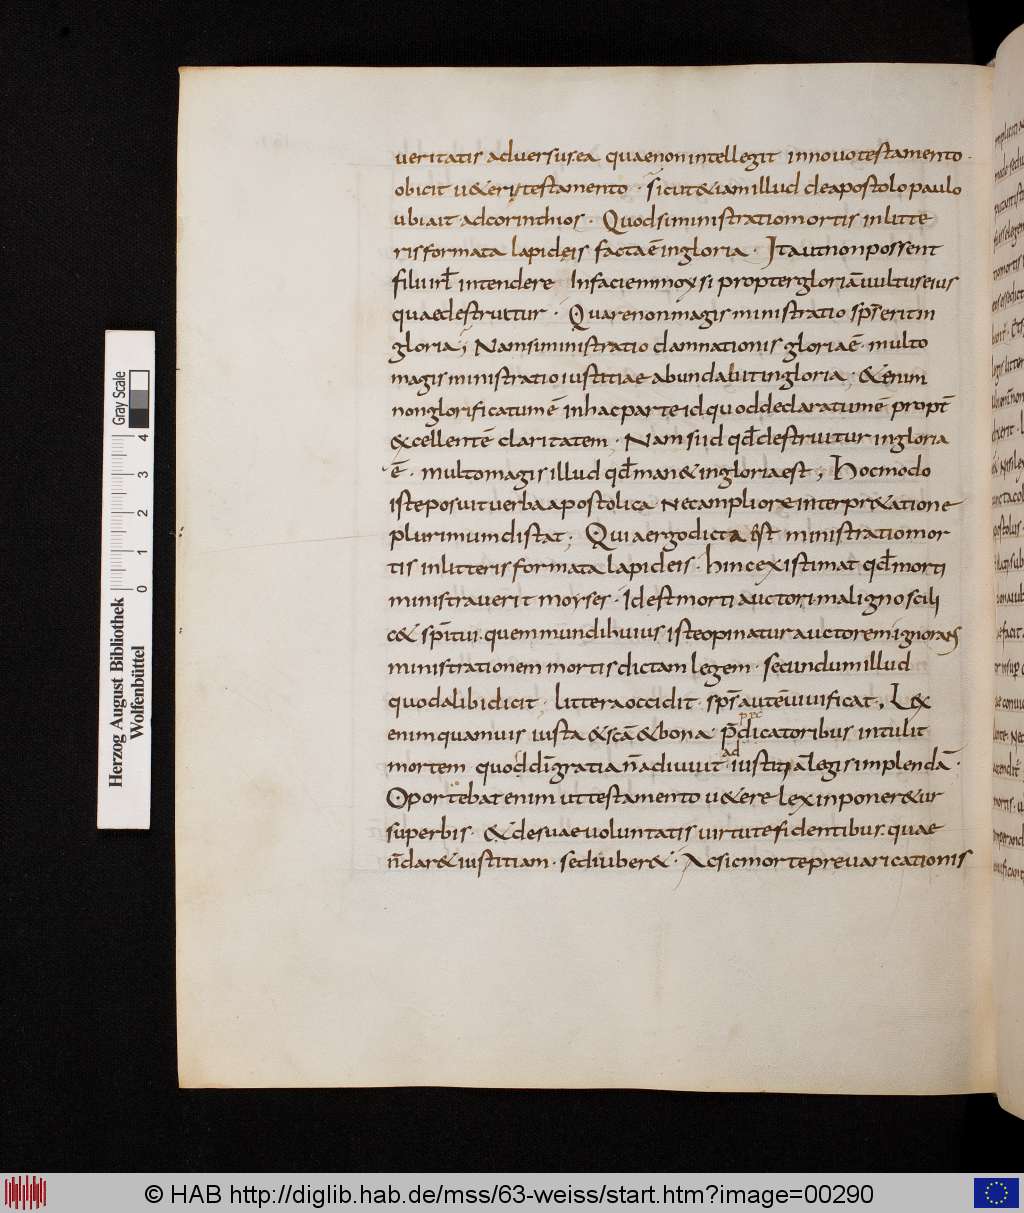 ueritatis aduersus ea quae non intellegit in nouo testamento ·
obicit u&eri testamento · sicut &iam illud de apostolo paulo
ubi ait ad corinthios · Quod si ministratio mortis in litte
ris formata lapideis facta ē in gloria · Ita ut non possent
filii irl̄ intendere In faciem moysi propter gloriā uultus eius
quae destruitur · Quare non magis ministratio sp̄s erit in
gloria; Nam si ministratio damnationis gloria ē · multo
magis ministratio iustitiae abundabit in gloria; &enim
non glorificatum ē in hac parte id quod declaratum ē propt̄
excellentē claritatem · Nam si id qd̄ destruitur in gloria
ē · multo magis illud qd̄ man& in gloria est; Hoc modo
iste posuit uerba apostolica nec ampliore interpr&atione
plurimum distat; Quia ergo dicta est ministratio mor
tis in litteris formata lapideis · hinc existimat qd̄ morti
ministrauerit moyses · Id est morti auctori maligno scili
c& sp̄itui · quem mundi huius iste opinatur auctorem ignorans
ministrationem mortis dictam legem · secundum illud
quod alibi dicit · littera occidit · sp̄s autē uiuificat · Lex
enim quamuis iusta & scā & bona p̄dicatoribus intulit
mortem quod dī gratia n̄ adiuuit ad iustitiā legis implendā ·
Oportebat enim ut testamento u&ere lex inponer&ur
superbis · & de suae uoluntatis uirtute fidentibus · quae
n̄ dar& iustitiam · sed iuber& · Ac sic morte preuaricationis
Herzog August Bibliothek
Wolfenbüttel
Gray Scale
0 1 2 3 4
© HAB http://diglib.hab.de/mss/63-weiss/start.htm?image=00290